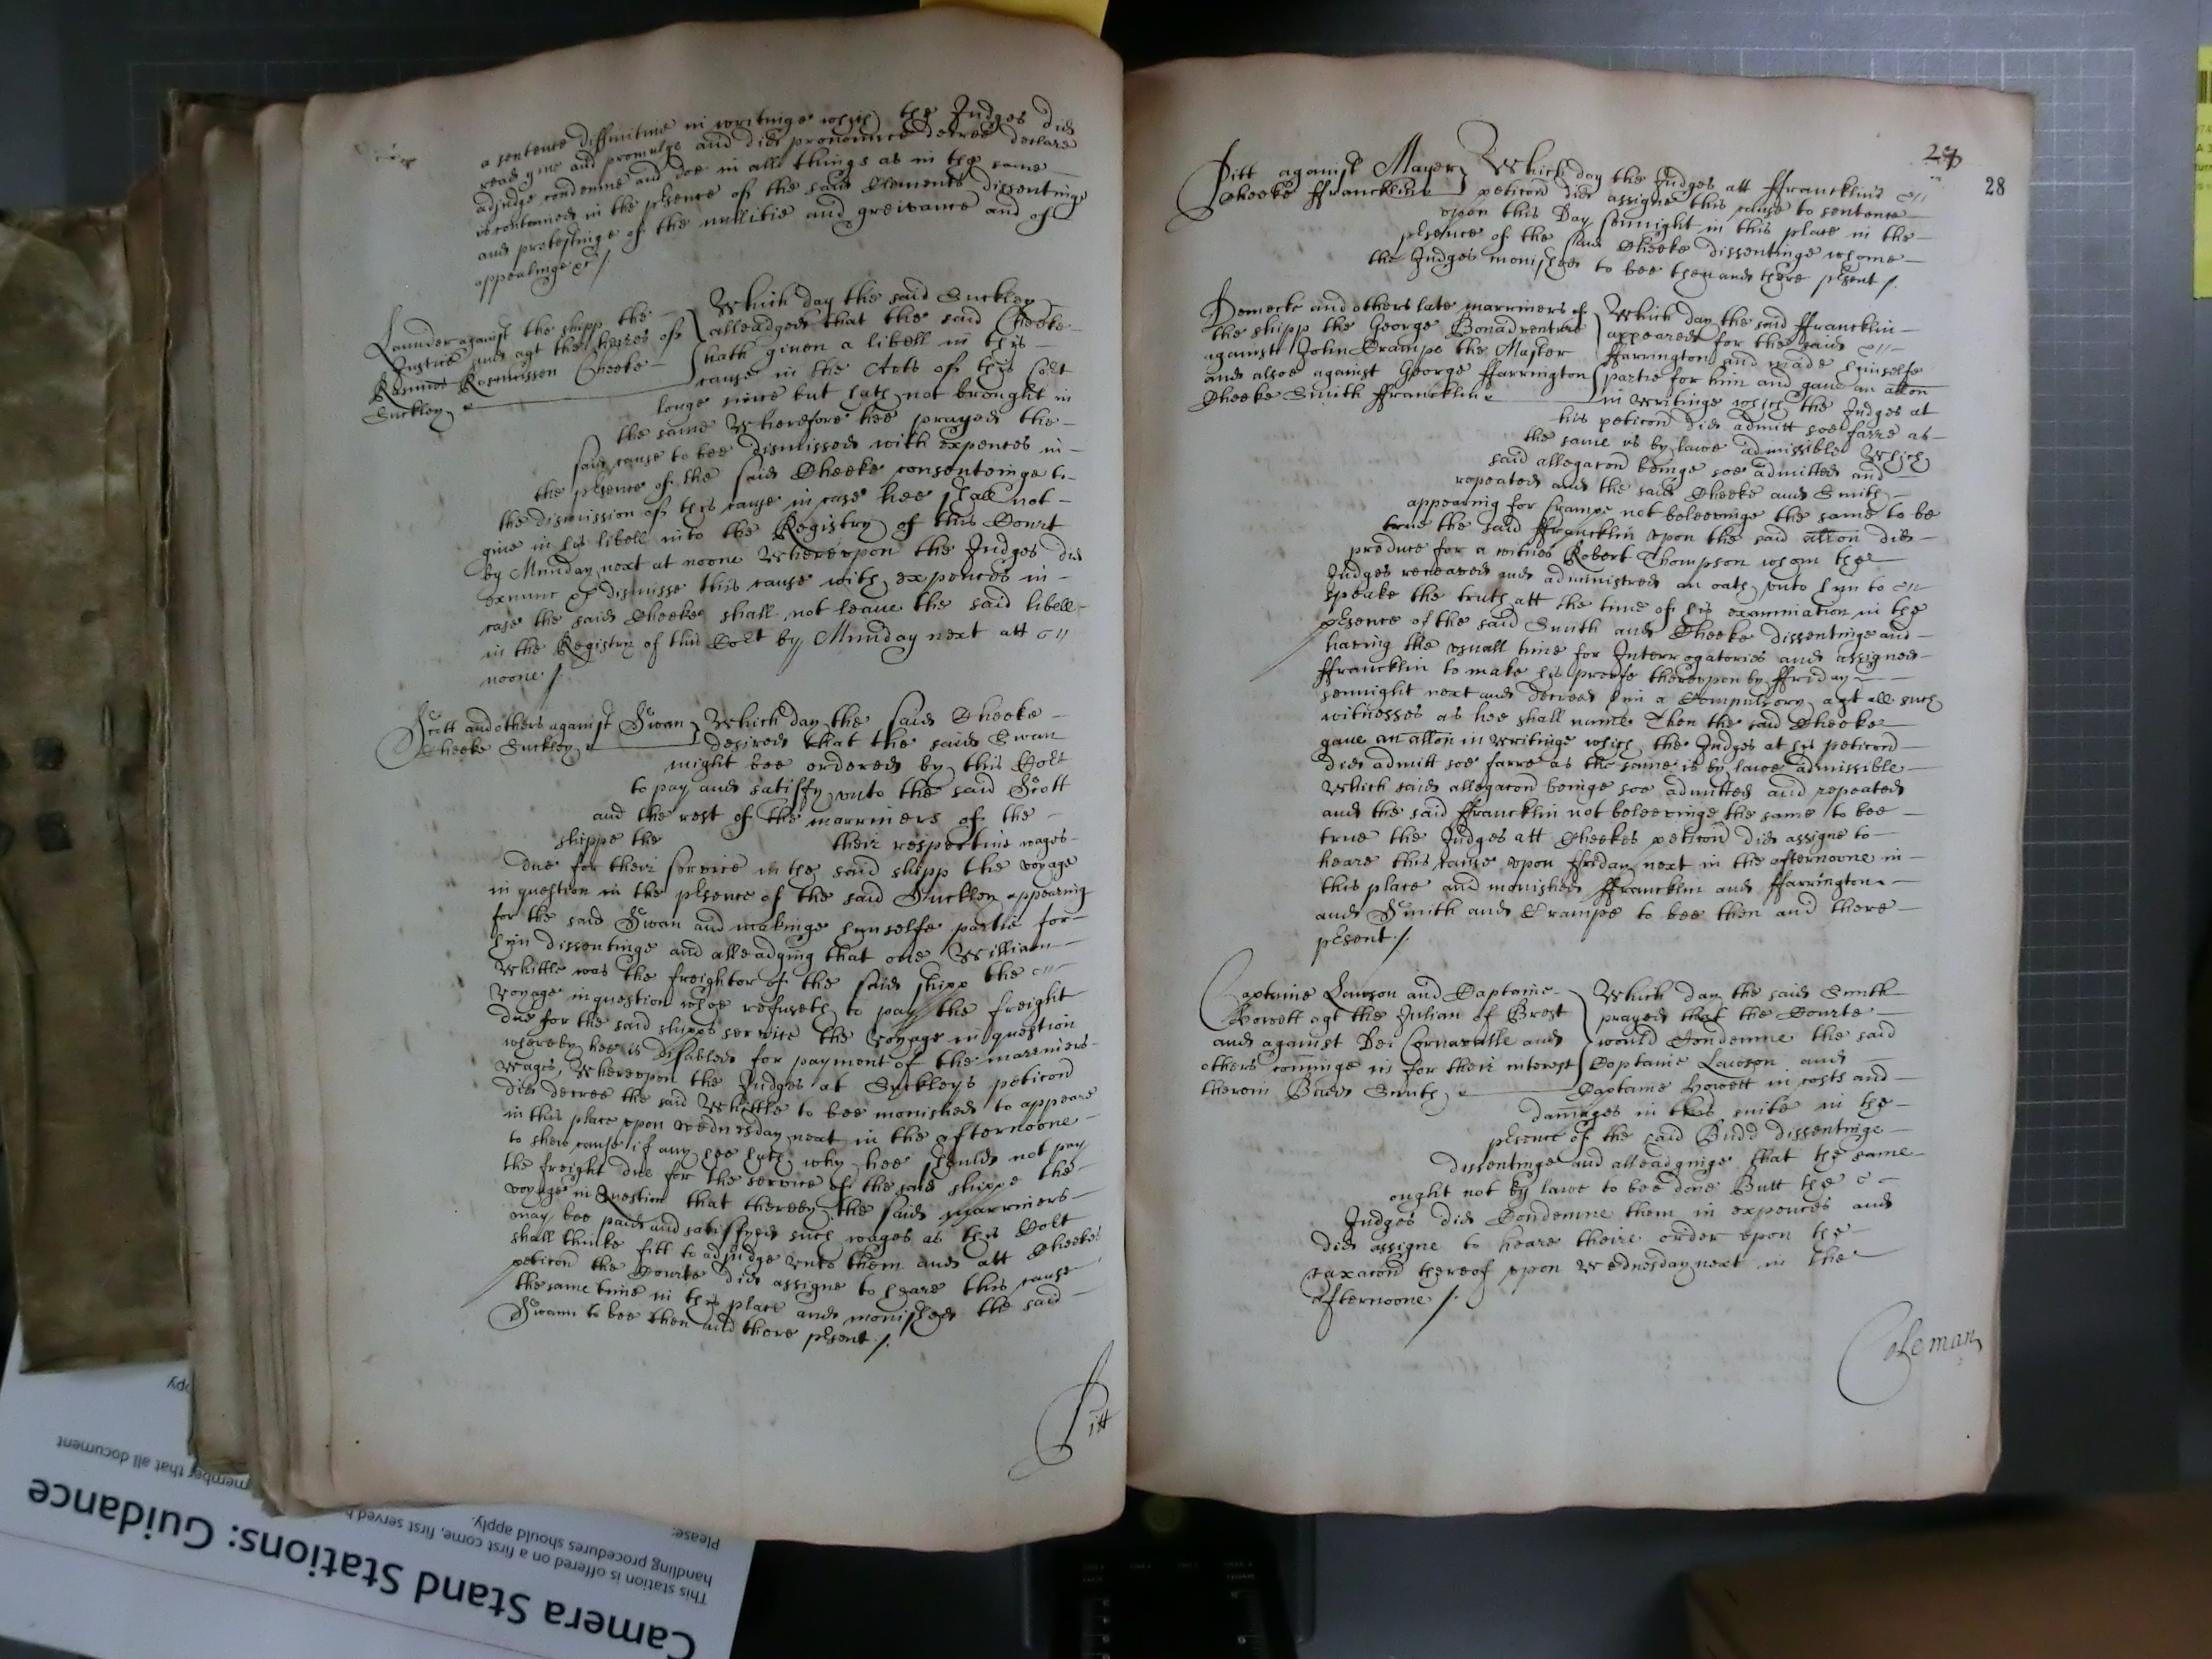 a sentence diffinitive in writinge which the Judges did
read give and promulge and did pronounce decree declare
adjudge condemne and doe in all things as in the same
is conteined in the psence of the said Clements dissentinge
and protestinge of the nullitie and greivance and of
appealinge &c /
Launder against the shipp the
Justice and agt the heires of
Rasmus Rasmusson Cheeke
Suckley
Which day the said Suckley
alleadged that the said Cheeke
hath given a libell in this
cause in the Acts of this Cort
longe since but hath not brought in
the same Wherefore hee prayed the
said cause to bee dismissed with expences in
the psence of the said Cheeke consentinge to
the dismission of this cause in case hee shall not
give in his libell into the Registry of this Court
by Munday next at noone Whereupon the Judges did
exnunc &c dismisse this cause with expences in
case the said Cheeke shall not leave the said libell
in the Registry of this Cort by Munday next att
noone /
Scott and others against Swan
Cheeke Suckley
Which day the said Cheeke
desired that the said Swan
might bee ordered by this Cort
to pay and satisfy unto the said Scott
and the rest of the marriners of the
shippe the their respective wages
due for their service in the said shipp the voyage
in question in the psence of the said Suckley appearing
for the said Swan and makinge hymselfe partie for
hym dissentinge and alleadging that one William
Whittle was the freightor of the said shipp the
voyage in question whoe refuseth to pay the freight
due for the said shipps service the voyage in question
whereby hee is disabled for payment of the marriners
wages, Whereupon the Judges at Suckleys peticon
did decree the said Whittle to bee monished to appeare
in this place upon Wednesday next in the afternoone
to shew cause if any hee hath why hee should not pay
the freight due for the service of the said shippe the
voyage in Question that thereby the said marriners
may bee paid and satisfyed such wages as this Cort
shall thinke fitt to adjudge unto them and att Cheekes
peticon the Courte did assigne to heare this cause
the same time in this place and monished the said
Swann to bee then and there psent /.
Pitt
27
28
Pitt against Mayer
Cheeke ffrancklin
Which day the Judges att ffrancklins
peticon did assigne this cause to sentence
upon this Day sennight in this place in the
psence of the said Cheeke dissentinge whome
the Judges monished to bee then and there psent /.
Demecke and others late marriners of
the shipp the George Bonadventure
against John Crampe the Master
and alsoe against George ffarrington
Cheeke Smith ffrancklin
Which day the said ffrancklin
appeared for the said
ffarrington and made himselfe
partie for him and gave an allon
in writinge which the Judges at
his peticon did admitt soe farre as
the same is by lawe admissible Which
said allegacon beinge soe admitted and
repeated and the said Cheeke and Smith
appearing for Crampe not beleevinge the same to be
true the said ffrancklin upon the said allon did
produce for a witnes Robert Thompson whom the
Judges received and administred an oath unto hym to
speake the truth att the time of his examination in the
psence of the said Smith and Cheeke dissentinge and
haveing the usuall time for Interrogatories and assigned
ffrancklin to make his proofe thereupon by ffriday
sennight next and decreed him a Compulsory agt all such
witnesses as hee shall name Then the said Cheeke
gave an allon in writinge which the Judges at his peticon
did admitt soe farre as the same is by lawe admissible
Which said allegacon beinge soe admitted and repeated
and the said ffrancklin not beleevinge the same to bee
true the Judges att Cheekes peticon did assigne to
heare this cause upon ffriday next in the afternoone in
this place and monished ffrancklin and ffarrington
and Smith and Crampe to bee then and there
psent /.
Captaine Lawson and Captaine
Howett agt the Julian of Brest
and against Dei Cornavalle and
others comminge in for their interest
therein Budd Smith
Which day the said Smith
prayed that the Courte
would Condemne the said
Captaine Lawson and
Captaine Howett in costs and
damages in this suite in the
psence of the said Budd dissentinge
dissentinge and alleadginge that the same
ought not by lawe to bee done Butt the
Judges did Condemne them in expences and
did assigne to heare theire order upon the
taxacon thereof upon Wednesday next in the
afternoone /.
Coleman
Camera Stand Stations: Guidance
This station is offered on a first come, first served b
handling procedures should apply.
Please:
member that all document